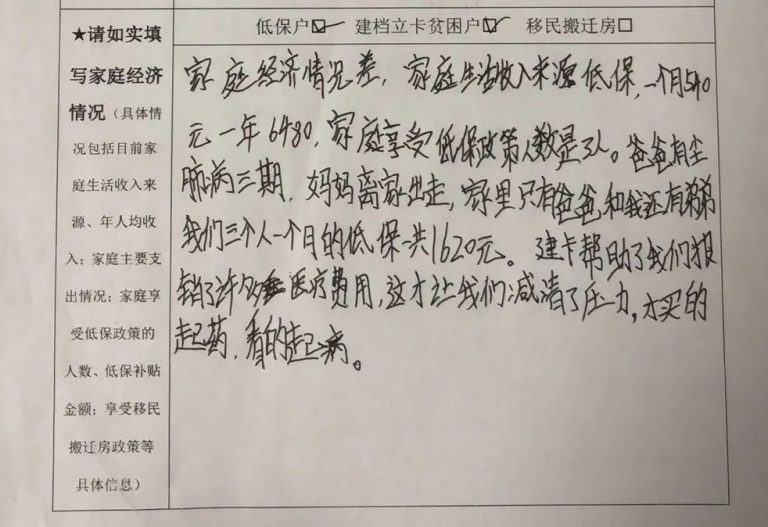 低保户☑ 建档立卡贫困户☑ 移民搬迁房□
★请如实填
写家庭经济
情况（具体情
况包括目前家
庭生活收入来
源、年人均收
入；家庭主要支
出情况；家庭享
受低保政策的
人数、低保补贴
金额；享受移民
搬迁房政策等
具体信息）
家庭经济情况差，家庭生活收入来源低保，一个月540
元一年6480，家庭享受低保政策人数是3人。爸爸有尘
肺病三期，妈妈离家出走，家里只有爸爸和我还有弟弟
我们三个人一个月的低保一共1620元。建卡帮助了我们报
销了许多医疗费用，这才让我们减清了压力，才买的
起药，看的起病。